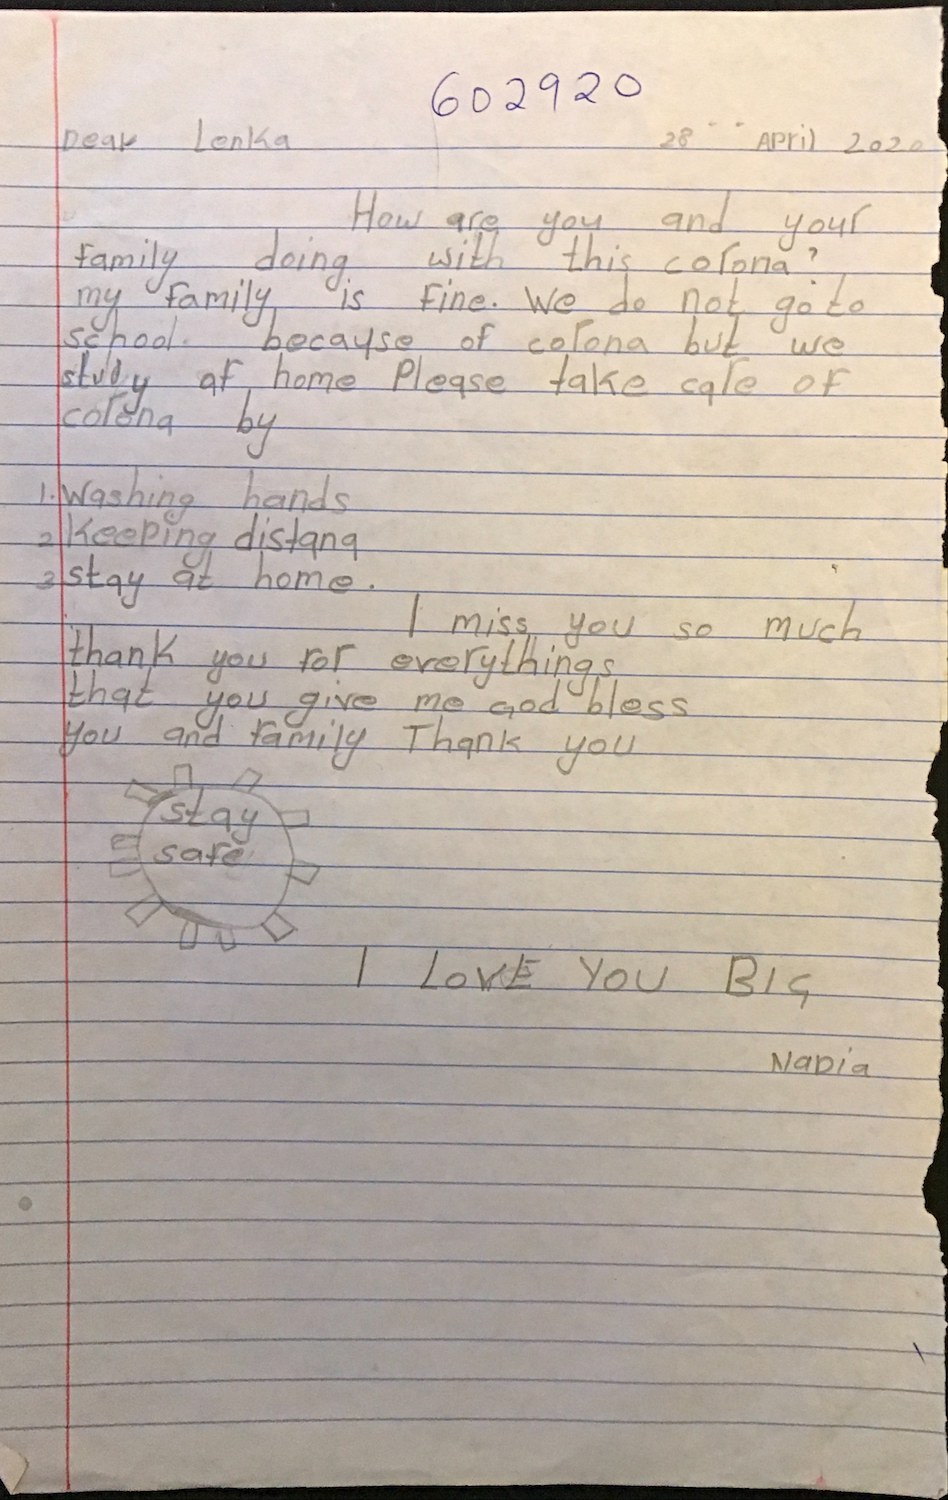 602920
Dear Lenka 28 April 2020
How are you and your
family doing with this corona?
my family is Fine. We do not go to
school. because of corona but we
study at home Please take care of
corona by
1. Washing hands
2 Keeping distanq
3 stay at home.
I miss you so much
thank you for everythings
that you give me God bless
you and family Thank you
stay
safe
I LOVE YOU BIG
Nadia